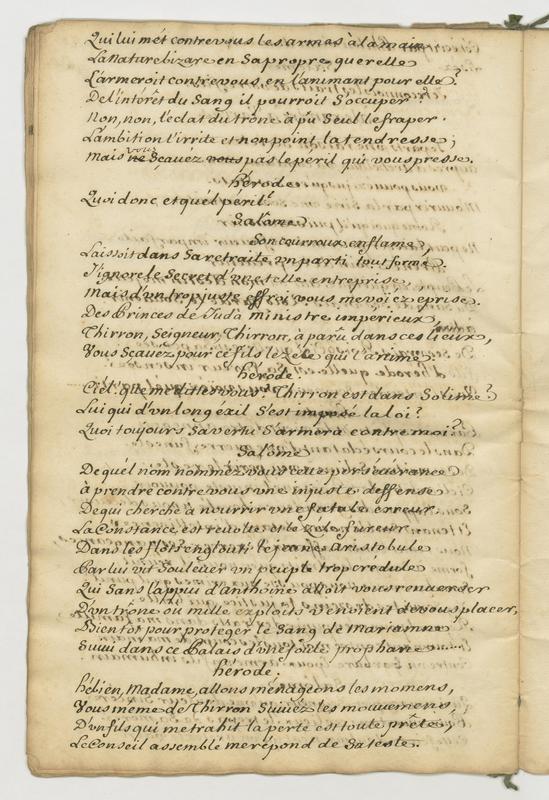 Qui lui mét contre vous les armes à la main
La Nature bizare en Sa propre querelle
L'armeroit contre vous, en l'animant pour elle?
De l'intérêt du Sang il pourroit S'occuper
Non, non, l'éclat du trône à pû Seul le fraper.
L'ambition l'irrite et non point la tendresse;
Mais vous ne Sçavez vous pas le peril qui vous presse.
hérode.
Quoi donc, et quél péril?
Salôme
Son courroux enflamé,
Laissoit dans Sa retraite vn parti tout formé.
J'ignore le Secret d'vne telle entreprise
Mais d'vn trop juste effroi vous me voiez éprise.
Des Princes de Juda ministre impérieux,
Thirron, Seigneur, Thirron, à parû dans ces lieux,
Vous Sçavez pour ce fils le zele qui l'anime
hérode.
Ciel! que médités vous? Thirron est dans Solime?
Lui qui d'vn long éxil S'est imposé la loi?
Quoi toujours Sa vertu S'armera contre moi?
Salôme
De quél nom nommez vous cette perséverance
à prendre contre vous vne injuste deffense
De qui cherche à nourrir vne fatale erreur
La Constance est revolte et le zele fureur
Dans les flots englouti le jeune Aristobule
Par lui vit Soulever vn peuple trop credule
Qui Sans l'appui d'anthoine alloit vous renverser
D'vn trône où mille exploits venoient de vous placer,
Bientôt pour proteger le Sang de Mariamne
Suivi dans ce Palais d'vne foule prophane
hérode.
hébien, Madame, allons ménageons les momens,
Vous même de Thirron Suivez les mouvemens,
D'vn fils qui me trahit la perte est toute prête,
Le Conseil assemblé me répond de Sa teste.